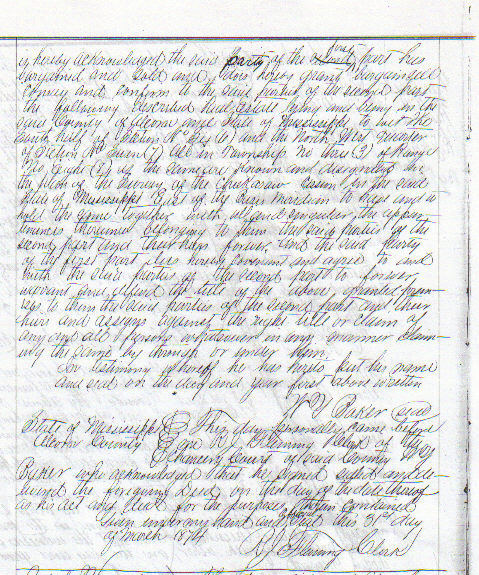 is hereby acknowledged the said party of the first part has
bargained and sold and does hereby grant bargain sell
convey and confirm to the said parties of the second part
the following described Real estate lying and being in the
said County of Alcorn and State of Mississippi to wit the
South half of Section No Six (6) and the North West quarter
of Section No Seven (7) All in Township No three (3) of Range
No Eight (8) as the same are known and designated in
the plan of the Survey of the Chickasaw Cession in the said
State of Mississippi East of the basis meridian to have and to
hold the same together with all and singular the appur-
tenances thereunto belonging to them the said parties of the
second part and their heirs forever and the said party
of the first part does hereby covenant and agree to and
with the said parties of the second part to forever
warrant and defend the title of the above granted prem-
ises to them the said parties of the second part and their
heirs and assigns against the right title or claim of
any and all persons whatsoever in any manner claim-
ing the same by through or under him
In testimony whereof he has hereto put his name
and seal on the day and year first above written
W Y Baker seal
State of Mississippi This day personally came before
Alcorn County me R J Fleming Clerk of the
Chancery Court of said County W Y
Baker who acknowledged that he signed sealed and de-
livered the foregoing Deed on the day of the date thereof
as his act and deed for the purposes therein contained
Given under my hand and official Seal this 31st day
of March 1874
R J Fleming Clerk